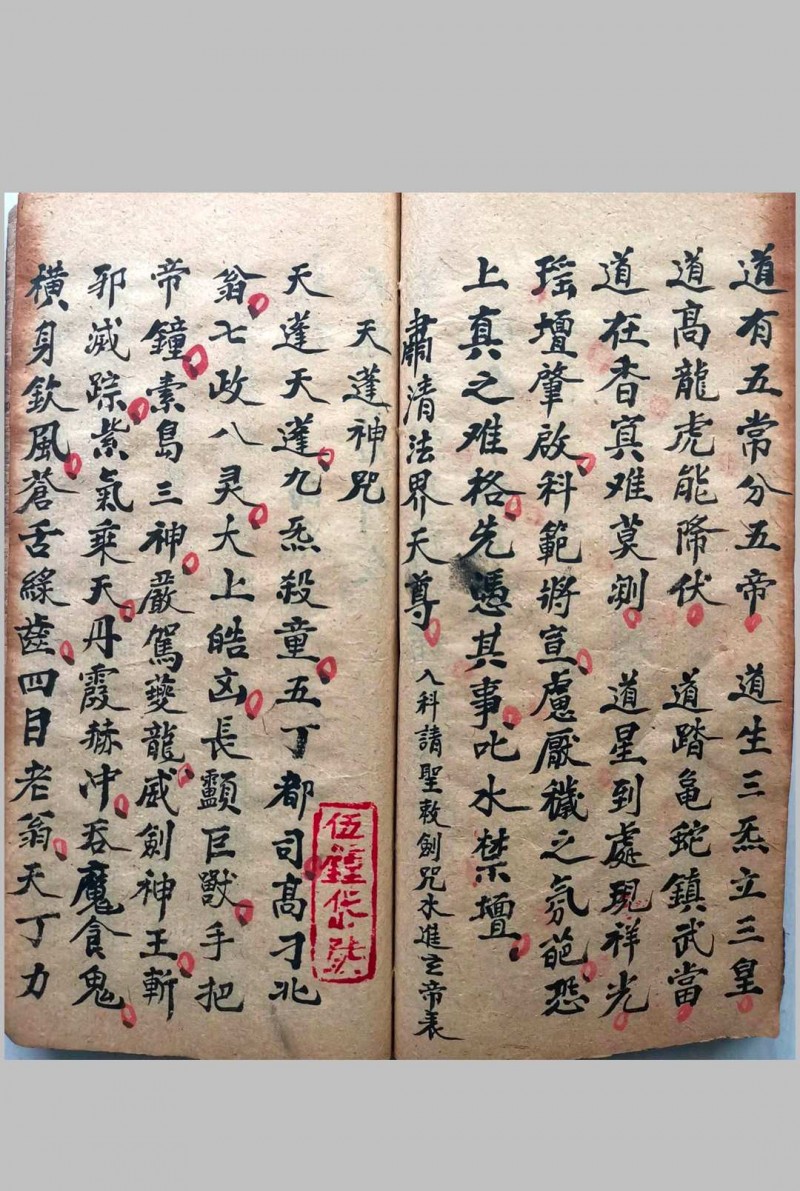 道有五常分五帝 道生三炁立三皇
道高龍虎能降伏 道踏龟蛇鎮武當
道在杳冥难莫測 道星到處現祥光
瑶壇肇啟科範將宣慮厭穢之氛葩恐
上真之难格先憑其事叱水禁壇
肅清法界天尊 入科請聖敕劍咒水進玄帝表
天蓬神咒
天蓬天蓬九炁殺童五丁都司高刁北
翁七政八灵大上皓凶長顱巨獸手把
帝鐘素島三神嚴駕夔龍威劍神王斬
邪滅踪紫氣乘天丹霞赫冲吞魔食鬼
橫身飲風蒼舌綠齒四目老翁天丁力